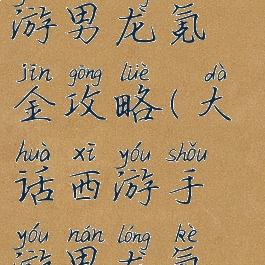 游男龙氪
jīn gōng lüè dà
金攻略(大
huà xī yóu shǒu
话西游手
yóu nán lóng kè
游男龙氪